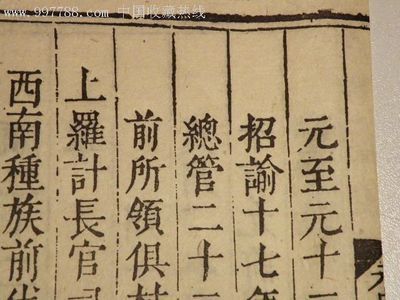 www.997788.com 中国收藏热线
元至元十二
招諭十七年
總管二十二
前所領俱
上羅計長官司
西南種族前代